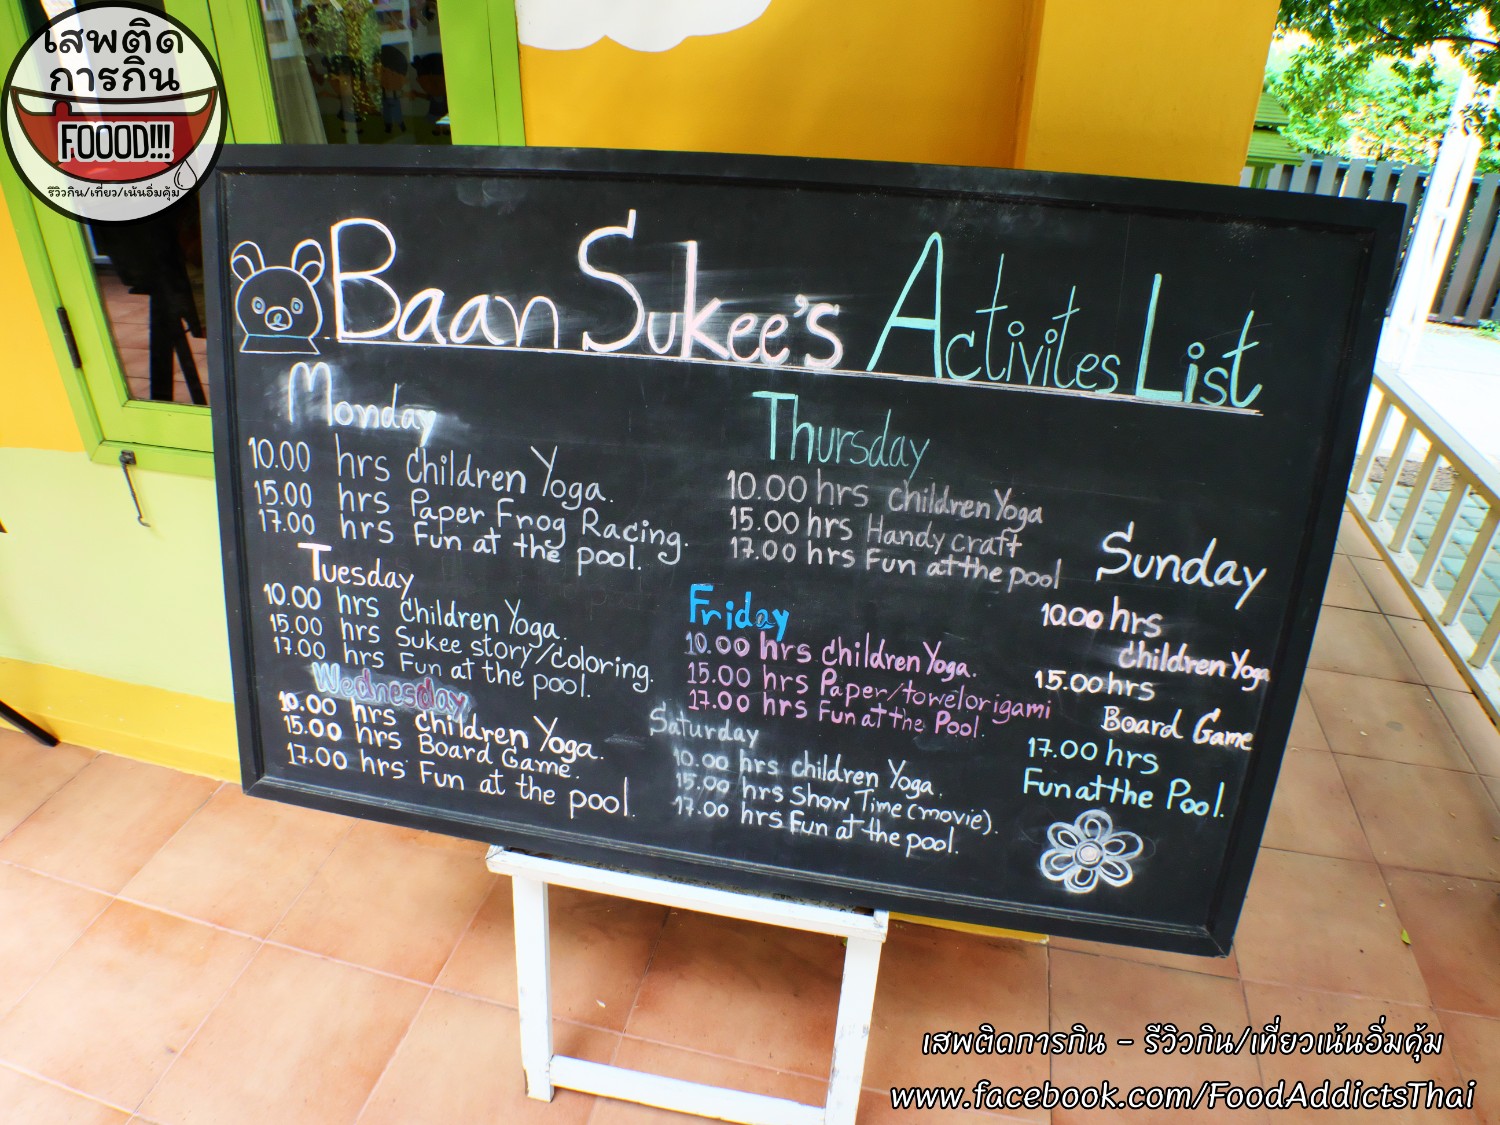 เสพติด
การกิน
FOOOD!!!
รีวิวกิน/เที่ยว/เน้นอิ่มคุ้ม
Baan Sukee's Activites List
Monday
10.00 hrs Children Yoga.
15.00 hrs Paper Frog Racing.
17.00 hrs Fun at the pool.
Tuesday
10.00 hrs Children Yoga.
15.00 hrs Sukee story/coloring.
17.00 hrs Fun at the pool.
Wednesday
10.00 hrs children Yoga.
15.00 hrs Board Game.
17.00 hrs Fun at the pool.
Thursday
10.00 hrs children Yoga
15.00 hrs Handy craft
17.00 hrs Fun at the pool
Friday
10.00 hrs children Yoga.
15.00 hrs Paper/towelorigami
17.00 hrs Fun at the Pool.
Saturday
10.00 hrs children Yoga.
15.00 hrs Show Time (movie).
17.00 hrs Fun at the pool.
Sunday
10.00 hrs
children Yoga
15.00 hrs
Board Game
17.00 hrs
Fun at the Pool.
เสพติดการกิน - รีวิวกิน/เที่ยวเน้นอิ่มคุ้ม
www.facebook.com/FoodAddictsThai